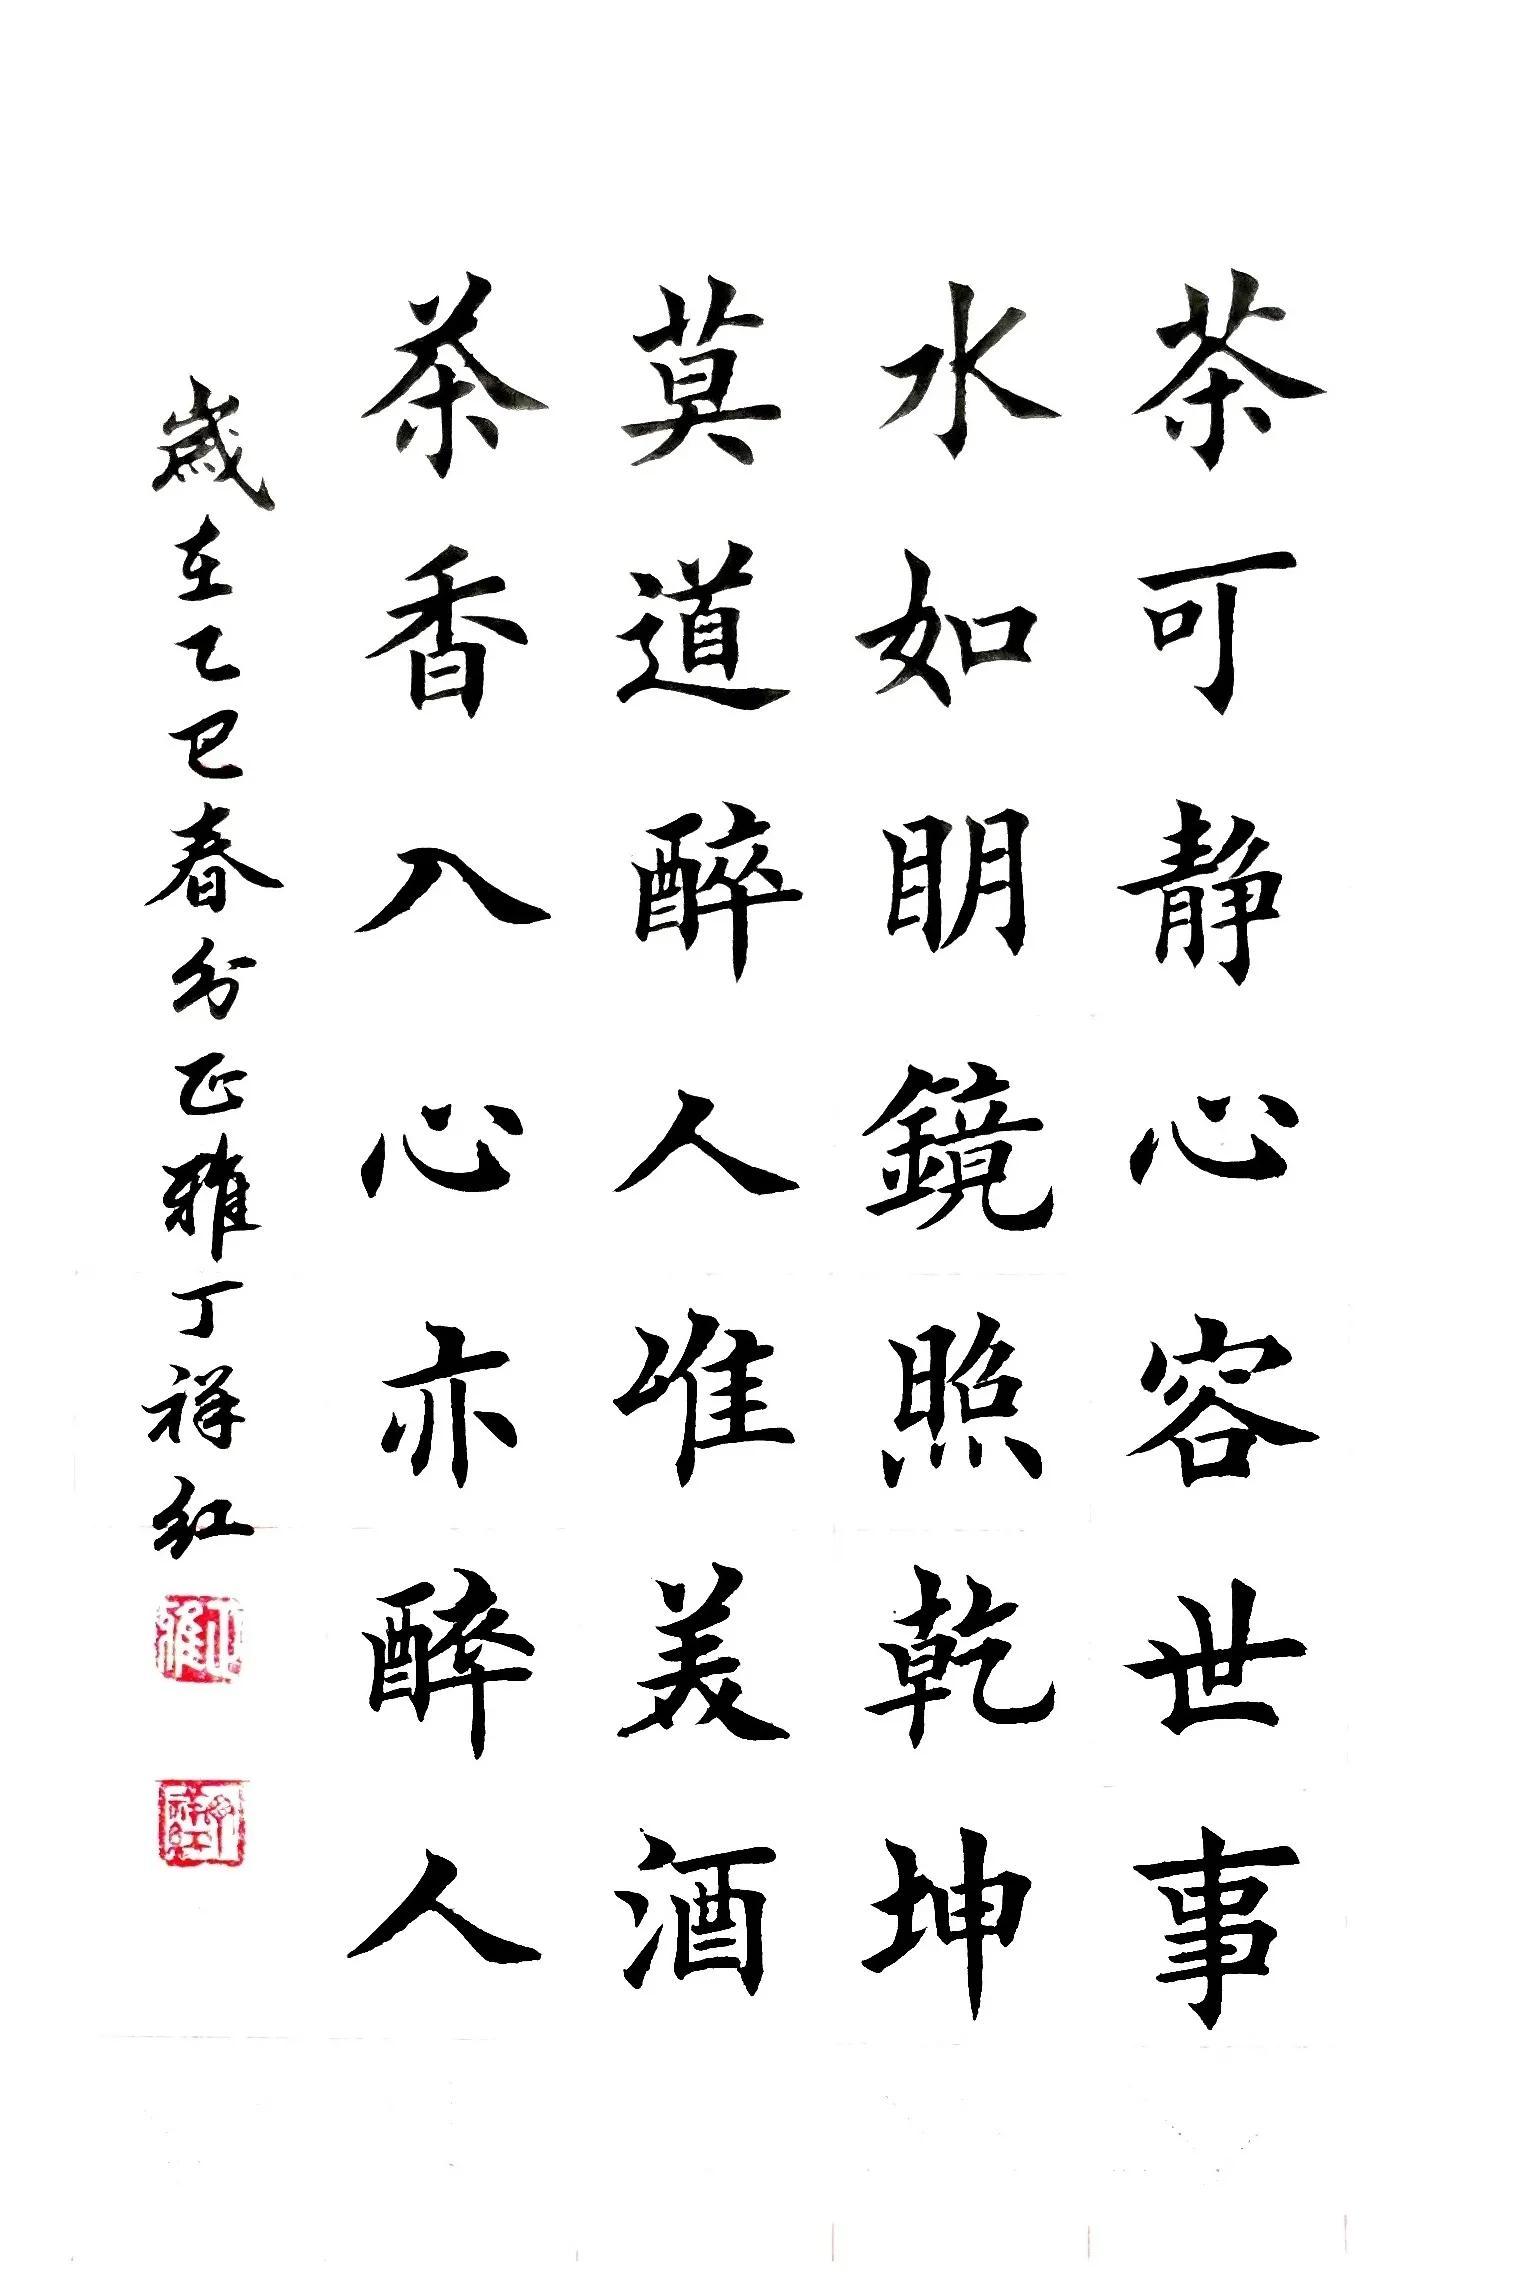 茶可静心容世事
水如明鏡照乾坤
莫道醉人唯美酒
茶香入心亦醉人
歲在乙巳春分正雅丁祥红
正雅